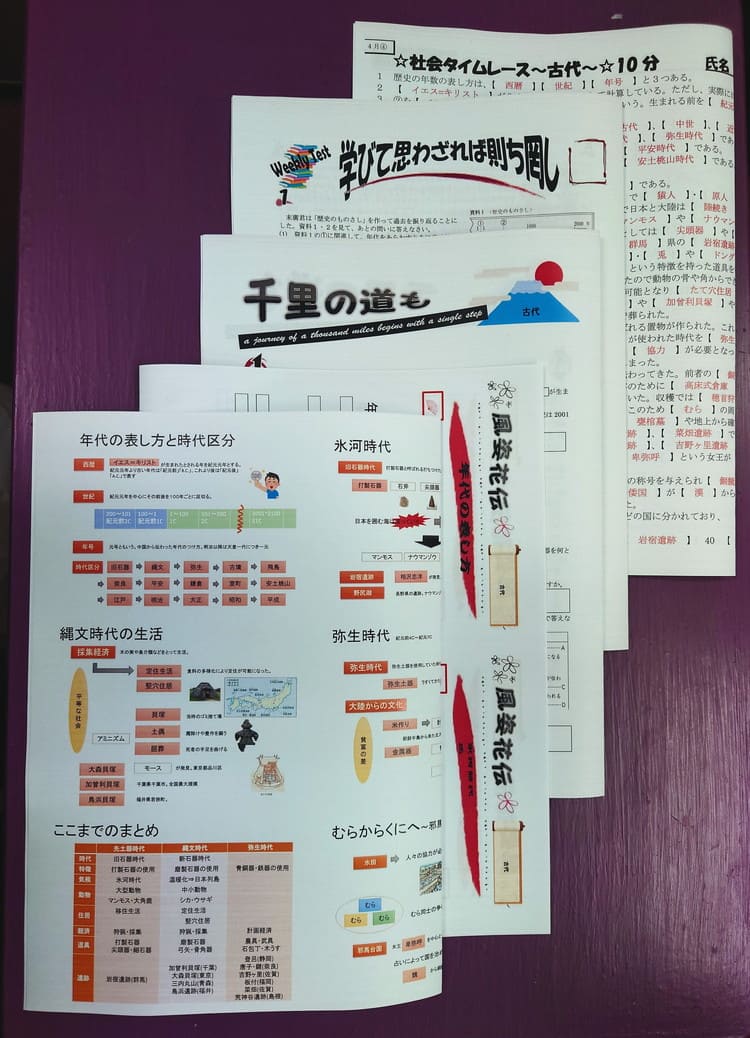 4月④
☆社会タイムレース～古代～☆10分 氏名
1 歴史の年数の表し方は、【 西暦 】【 世紀 】【 年号 】と3つある。
2 【 イエス=キリスト 】
計算している。ただし、実際に
いう。生まれる前を【 紀元
古代 】、【 中世 】、【 近
】、【 弥生時代 】であ
【 平安時代 】である。
【 安土桃山時代 】
】である。
で【 猿人 】・【 原人
で日本と大陸は【 陸続き
ンモス 】や【 ナウマン
しては【 尖頭器 】や【
群馬 】県の【 岩宿遺跡
】・【 兎 】や【 ドング
】という特徴を持った道具を
たので動物の骨や角からで
可能となり【 たて穴住居
】や【 加曽利貝塚 】や
で葬られた。
ばれる置物が作られた。これ
が使われた時代を【 弥生
【 協力 】が必要となっ
まった。
わってきた。前者の【 銅
のために【 高床式倉庫
いた。収穫では【 穂首狩
このため【 むら 】の周
【 甕棺墓 】や地上から確
跡 】、【 菜畑遺跡 】
】、【 吉野ヶ里遺跡 】
卑弥呼 】という女王が
の称号を与えられ【 銅鏡
倭国 】が【 漢 】から
どの国に分かれており、
岩宿遺跡 】 40 【
Weekly Test
1
学びて思わざれば則ち罔し
末廣君は「歴史のものさし」を作って過去を振り返ることに
した。資料1・2を見て、あとの問いに答えなさい。
資料1(歴史のものさし)
千里の道も
a journey of a thousand miles begins with a single step
古代
1
風姿花伝
年代の表し方
古代
風姿花伝
古代
年代の表し方と時代区分
西暦
イエス=キリスト が生まれたとされる年を紀元元年とする。
紀元元年より古い年代は「紀元前」「A.C.」、これより後は「紀元後」
「A.C.」で表す
世紀
紀元元年を中心にその前後を100年ごとに区切る。
200～101 100～1 1～100 101～200 2001～2100
紀元前2C 紀元前1C 1C 2C 21C
年号
元号という。中国から伝わった年代のつけ方。明治以降は天皇一代につき一元
時代区分 旧石器 縄文 弥生 古墳 飛鳥
奈良 平安 鎌倉 室町 安土桃山
江戸 明治 大正 昭和 平成
氷河時代
旧石器時代
打製石器と呼ばれる打ちつけた
打製石器 石斧 尖頭器
日本を囲む海は
マンモス ナウマンゾウ
岩宿遺跡 相沢忠洋 が発見
野尻湖 長野県の遺跡。ナウマン
縄文時代の生活
採集経済 木の実や魚介類などをとって生活。
定住生活 食料の多様化により定住が可能になった。
竪穴住居
平等な社会
貝塚 当時のゴミ捨て場
アニミズム
土偶 魔除けや豊作を願う
屈葬 死者の手足を曲げる
大森貝塚 モース が発見。東京都品川区
加曽利貝塚 千葉県千葉市。全国最大規模
鳥浜貝塚 福井県若狭町。
弥生時代 紀元前4C～紀元3C
弥生時代 弥生土器を使用していた
弥生土器 うすくてかた
大陸からの文化
米作り
貧富の差
朝鮮半島から
金属器
ここまでのまとめ
先土器時代 縄文時代 弥生時代
時代 旧石器時代 新石器時代
特徴 打製石器の使用 磨製石器の使用 青銅器・鉄器の使用
気候 氷河時代 温暖化⇒日本列島
動物 大型動物 中小動物
マンモス・大角鹿 シカ・ウサギ
住居 移住生活 定住生活
竪穴住居
経済 狩猟・採集 狩猟・採集 計画経済
道具 打製石器 磨製石器 農具・武具
尖頭器・細石器 弓矢・骨角器 石包丁・木うす
遺跡 岩宿遺跡(群馬)
加曽利貝塚(千葉)
大森貝塚(東京)
三内丸山(青森)
鳥浜遺跡(福井)
登呂(静岡)
唐子・鍵(奈良)
吉野ヶ里(佐賀)
板付(福岡)
菜畑(佐賀)
荒神谷遺跡(島根)
むらからくにへ～邪馬
水田 人々の協力が必
むら
むら むら
むら同士の争
邪馬台国 女王 卑弥呼 を中心に
占いによって国を治め
魏